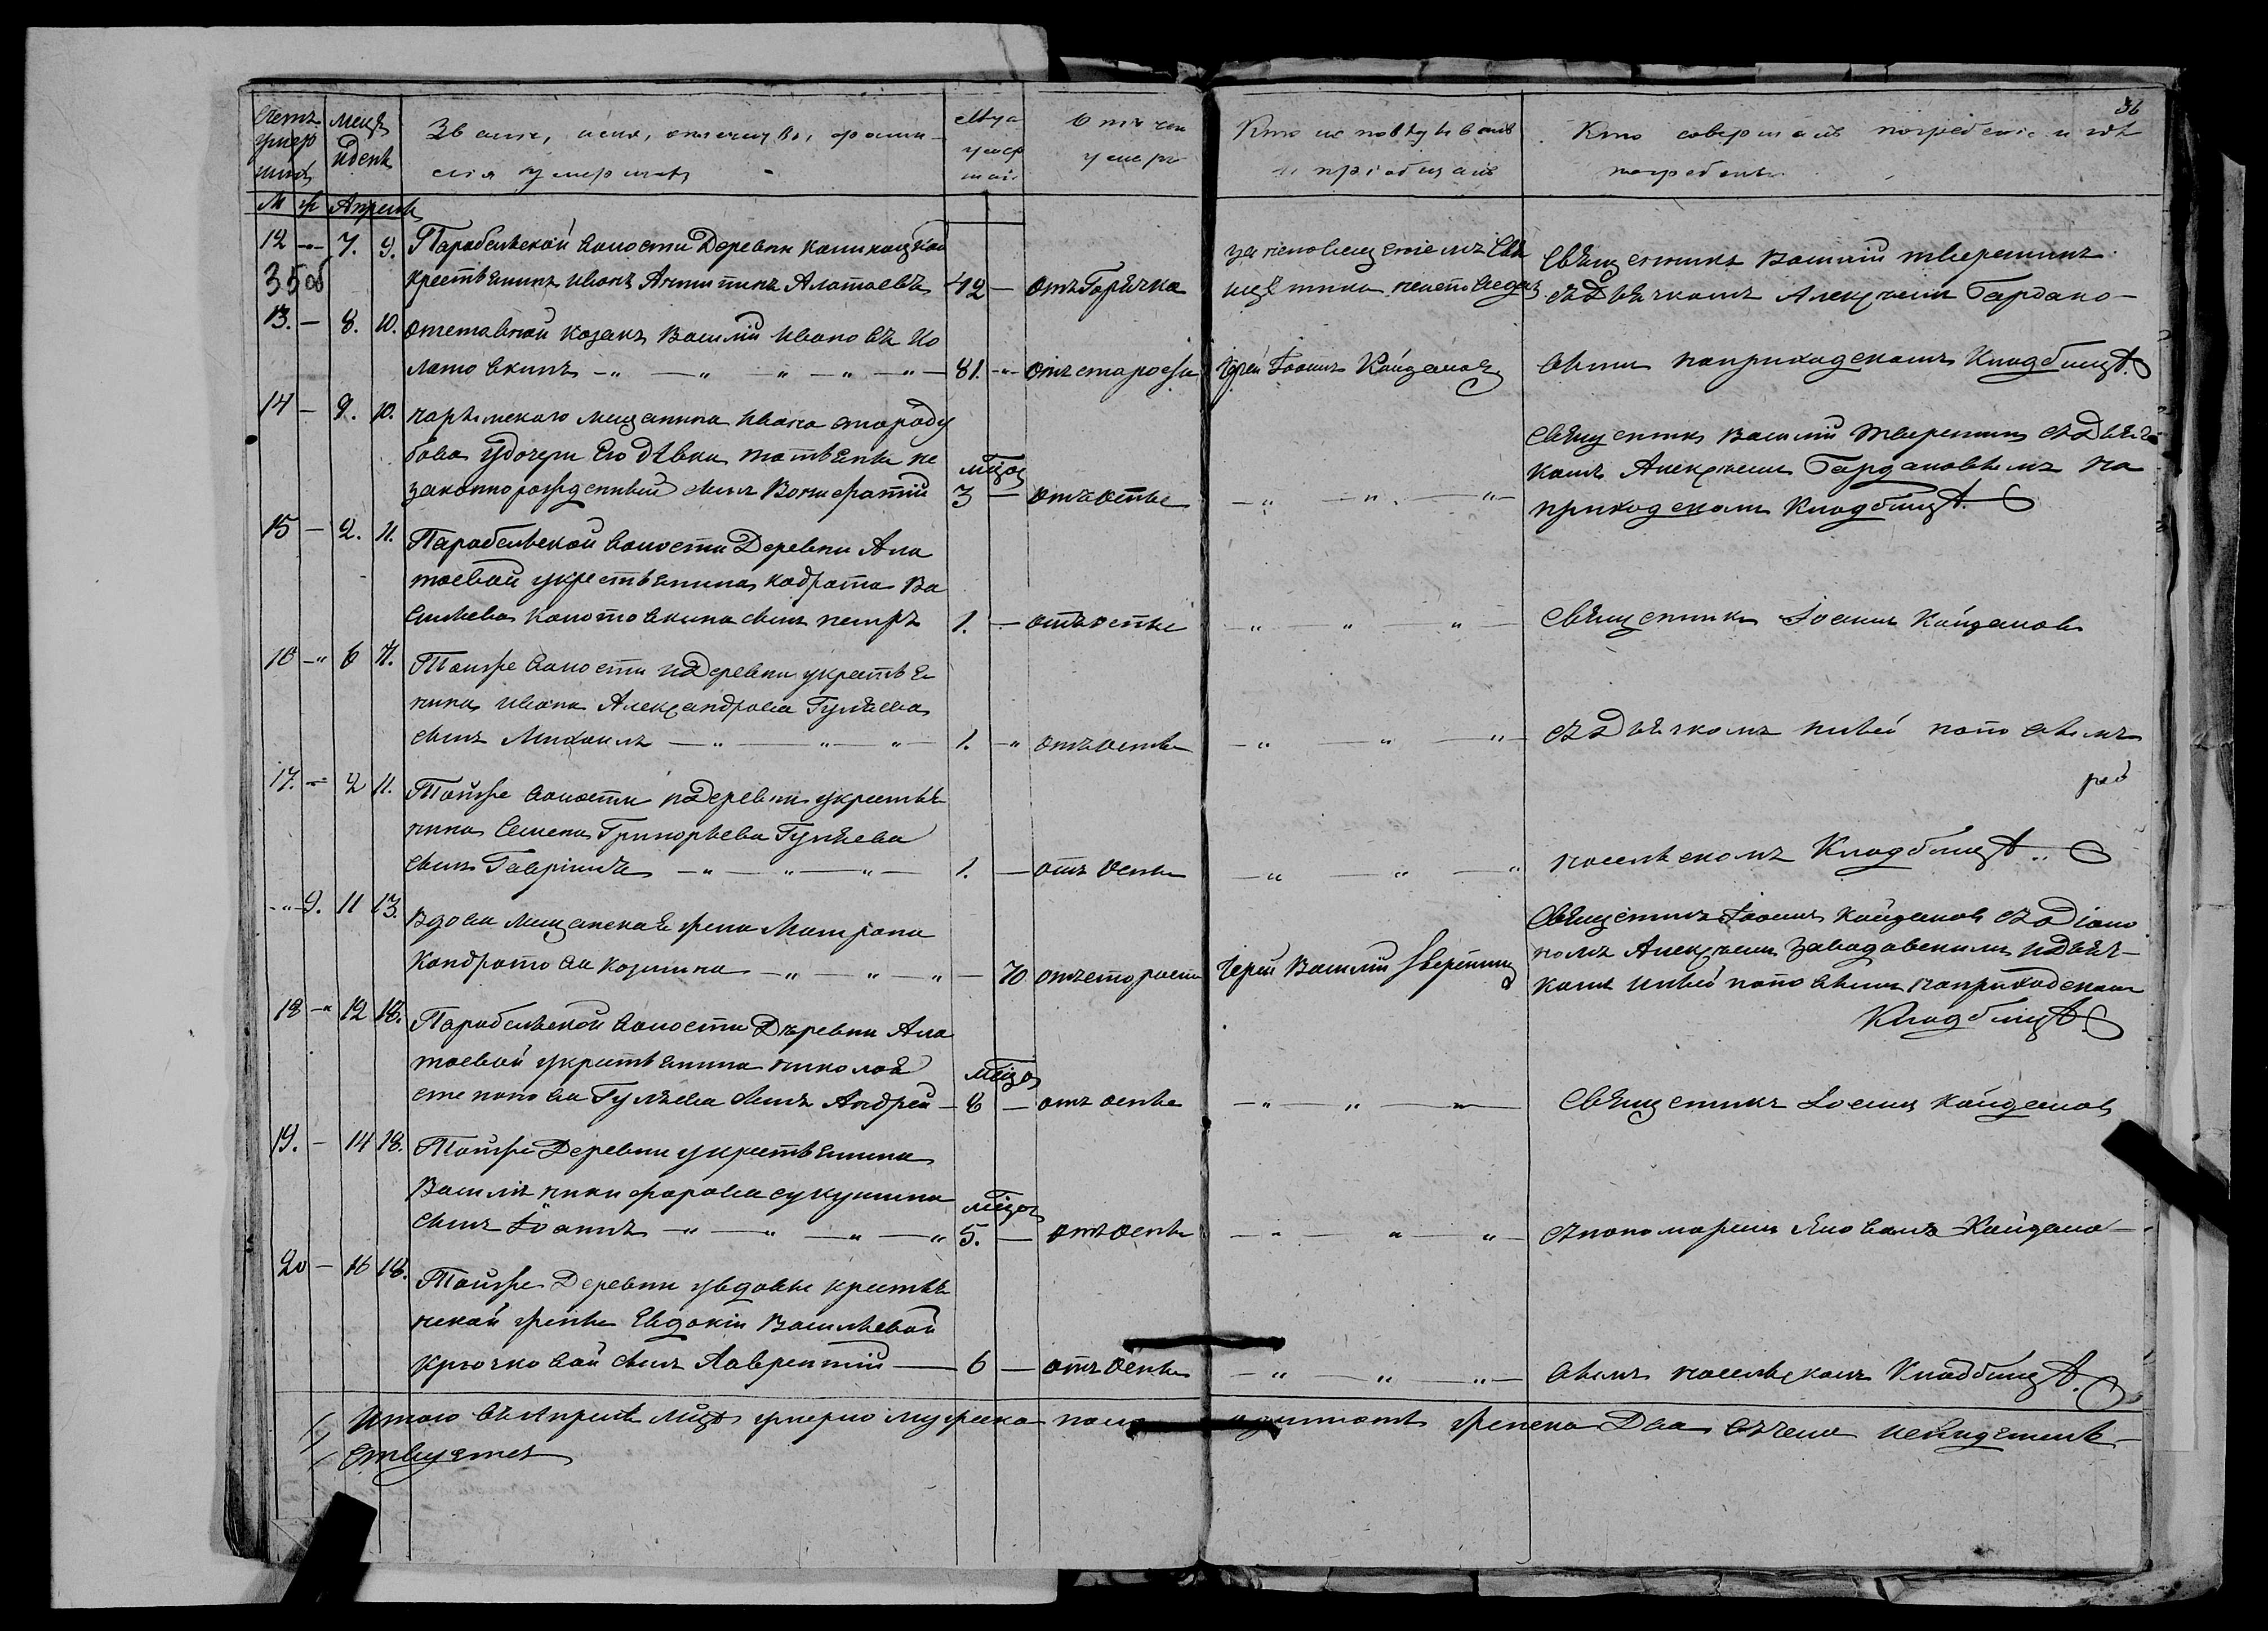 36
Счетъ умершихъ
Мецъ и день
Званіе, имя, отечество, фами-
лія умершихъ
Лѣта умершаго
Отъ чего умеръ
Кто исповѣдывалъ
и пріобщалъ
Кто совершалъ погребеніе и гдѣ
погребены
М Ж Апрель
12 — 7. 9. Парабельской волости Деревни
35 об
крестьянинъ Иванъ Антипинъ Алатаевъ 42 — отъ Горячка
священника
Священникъ Василій Тверитинъ
съ Дьячкомъ Алексѣемъ Гордано-
13. — 8. 10. отставной козакъ Василій Ивановъ Ко
лотовкинъ — „ — „ — „ — „ — „ — 81. — отъ старости
Іерей Іоаннъ Кайдановъ
вымъ наприходскомъ Кладбищѣ.
14 — 9. 10. нарымскаго мещанина Ивана
бова удочери Его дѣвки Татьяны не
законнорожденный сынъ Вонифатій
мцовъ
3 — отъ оспы
— „ — „ — „ —
Священникъ Василій Тверитинъ съ Дьяч
комъ Алексѣемъ Гордановымъ на
приходскомъ Кладбищѣ.
15 — 2. 11. Парабельской волости Деревни Ала
таевой укрестьянина Кодрата Ва
сильева Колотовкина сынъ Петръ 1. — отъ оспы
— „ — „ — „ —
Священникъ Іоаннъ Кайдановъ
16 — „ 6 11. Тойже волости и Деревни укрестья
нина Ивана Александрова Гуляева
сынъ Михаилъ — „ — „ — „ — 1. — „ отъ оспы
— „ — „ — „ —
съ Дьячкомъ поповымъ
17. — 2 11. Тойже волости и Деревни укрестья
нина Семена Григорьева Гуляева
сынъ Гавріилъ — „ — „ — „ — 1. — отъ оспы
— „ — „ — „
носельскомъ Кладбищѣ.
— „ — 9. 11 13. Вдова мещанская жена Матрона
Кондратова Козмина — „ — „ — „ — 70 отъ старости
Іерей Василій Тверитинъ
Священникъ Іоаннъ Кайдановъ съ Діако
номъ Алексѣемъ Завадовскимъ и дьяч-
комъ поповымъ наприходскомъ
Кладбищѣ.
18 — „ 12 18. Парабельской волости Деревни Ала
таевой укрестьянина Николая
степанова Гуляева сынъ Андрей —
мцовъ
8 — отъ оспы
— „ — „ — „ —
Священникъ Іоаннъ Кайдановъ
19. — 14 18. Тойже Деревни укрестьянина
Василія Никифорова сукушина
сынъ Іоаннъ — „ — „ — „ — „
мцовъ
5. — отъ оспы
— „ — „ — „ —
съ пономаремъ Яковомъ Кайдано-
20 — 16 18. Тойже Деревни увдовы крестья
нской жены Евдокіи Васильевой
Крючковой сынъ Лаврентій — 6 — отъ оспы
— „ — „ — „ —
вымъ носельскомъ Кладбищѣ.
Итого въ Апрелѣ мцѣ умерло мужеска пола женска Два въ чемъ и свидетель-
ствуемъ